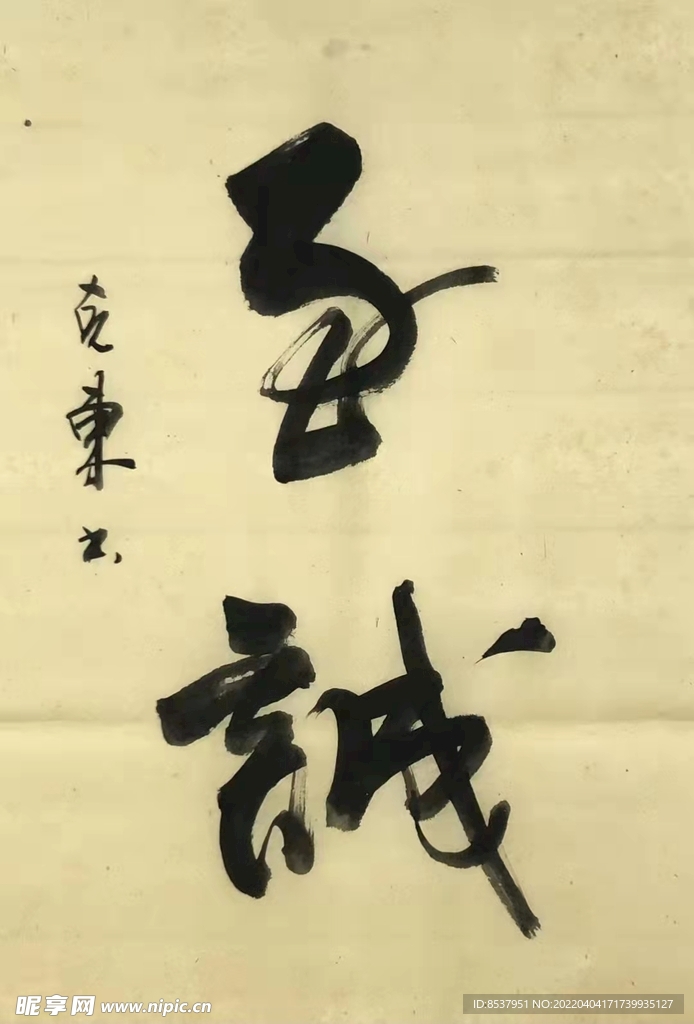 至誠
克東书
昵享网 www.nipic.cn
ID:8537951 NO:20220404171739935127